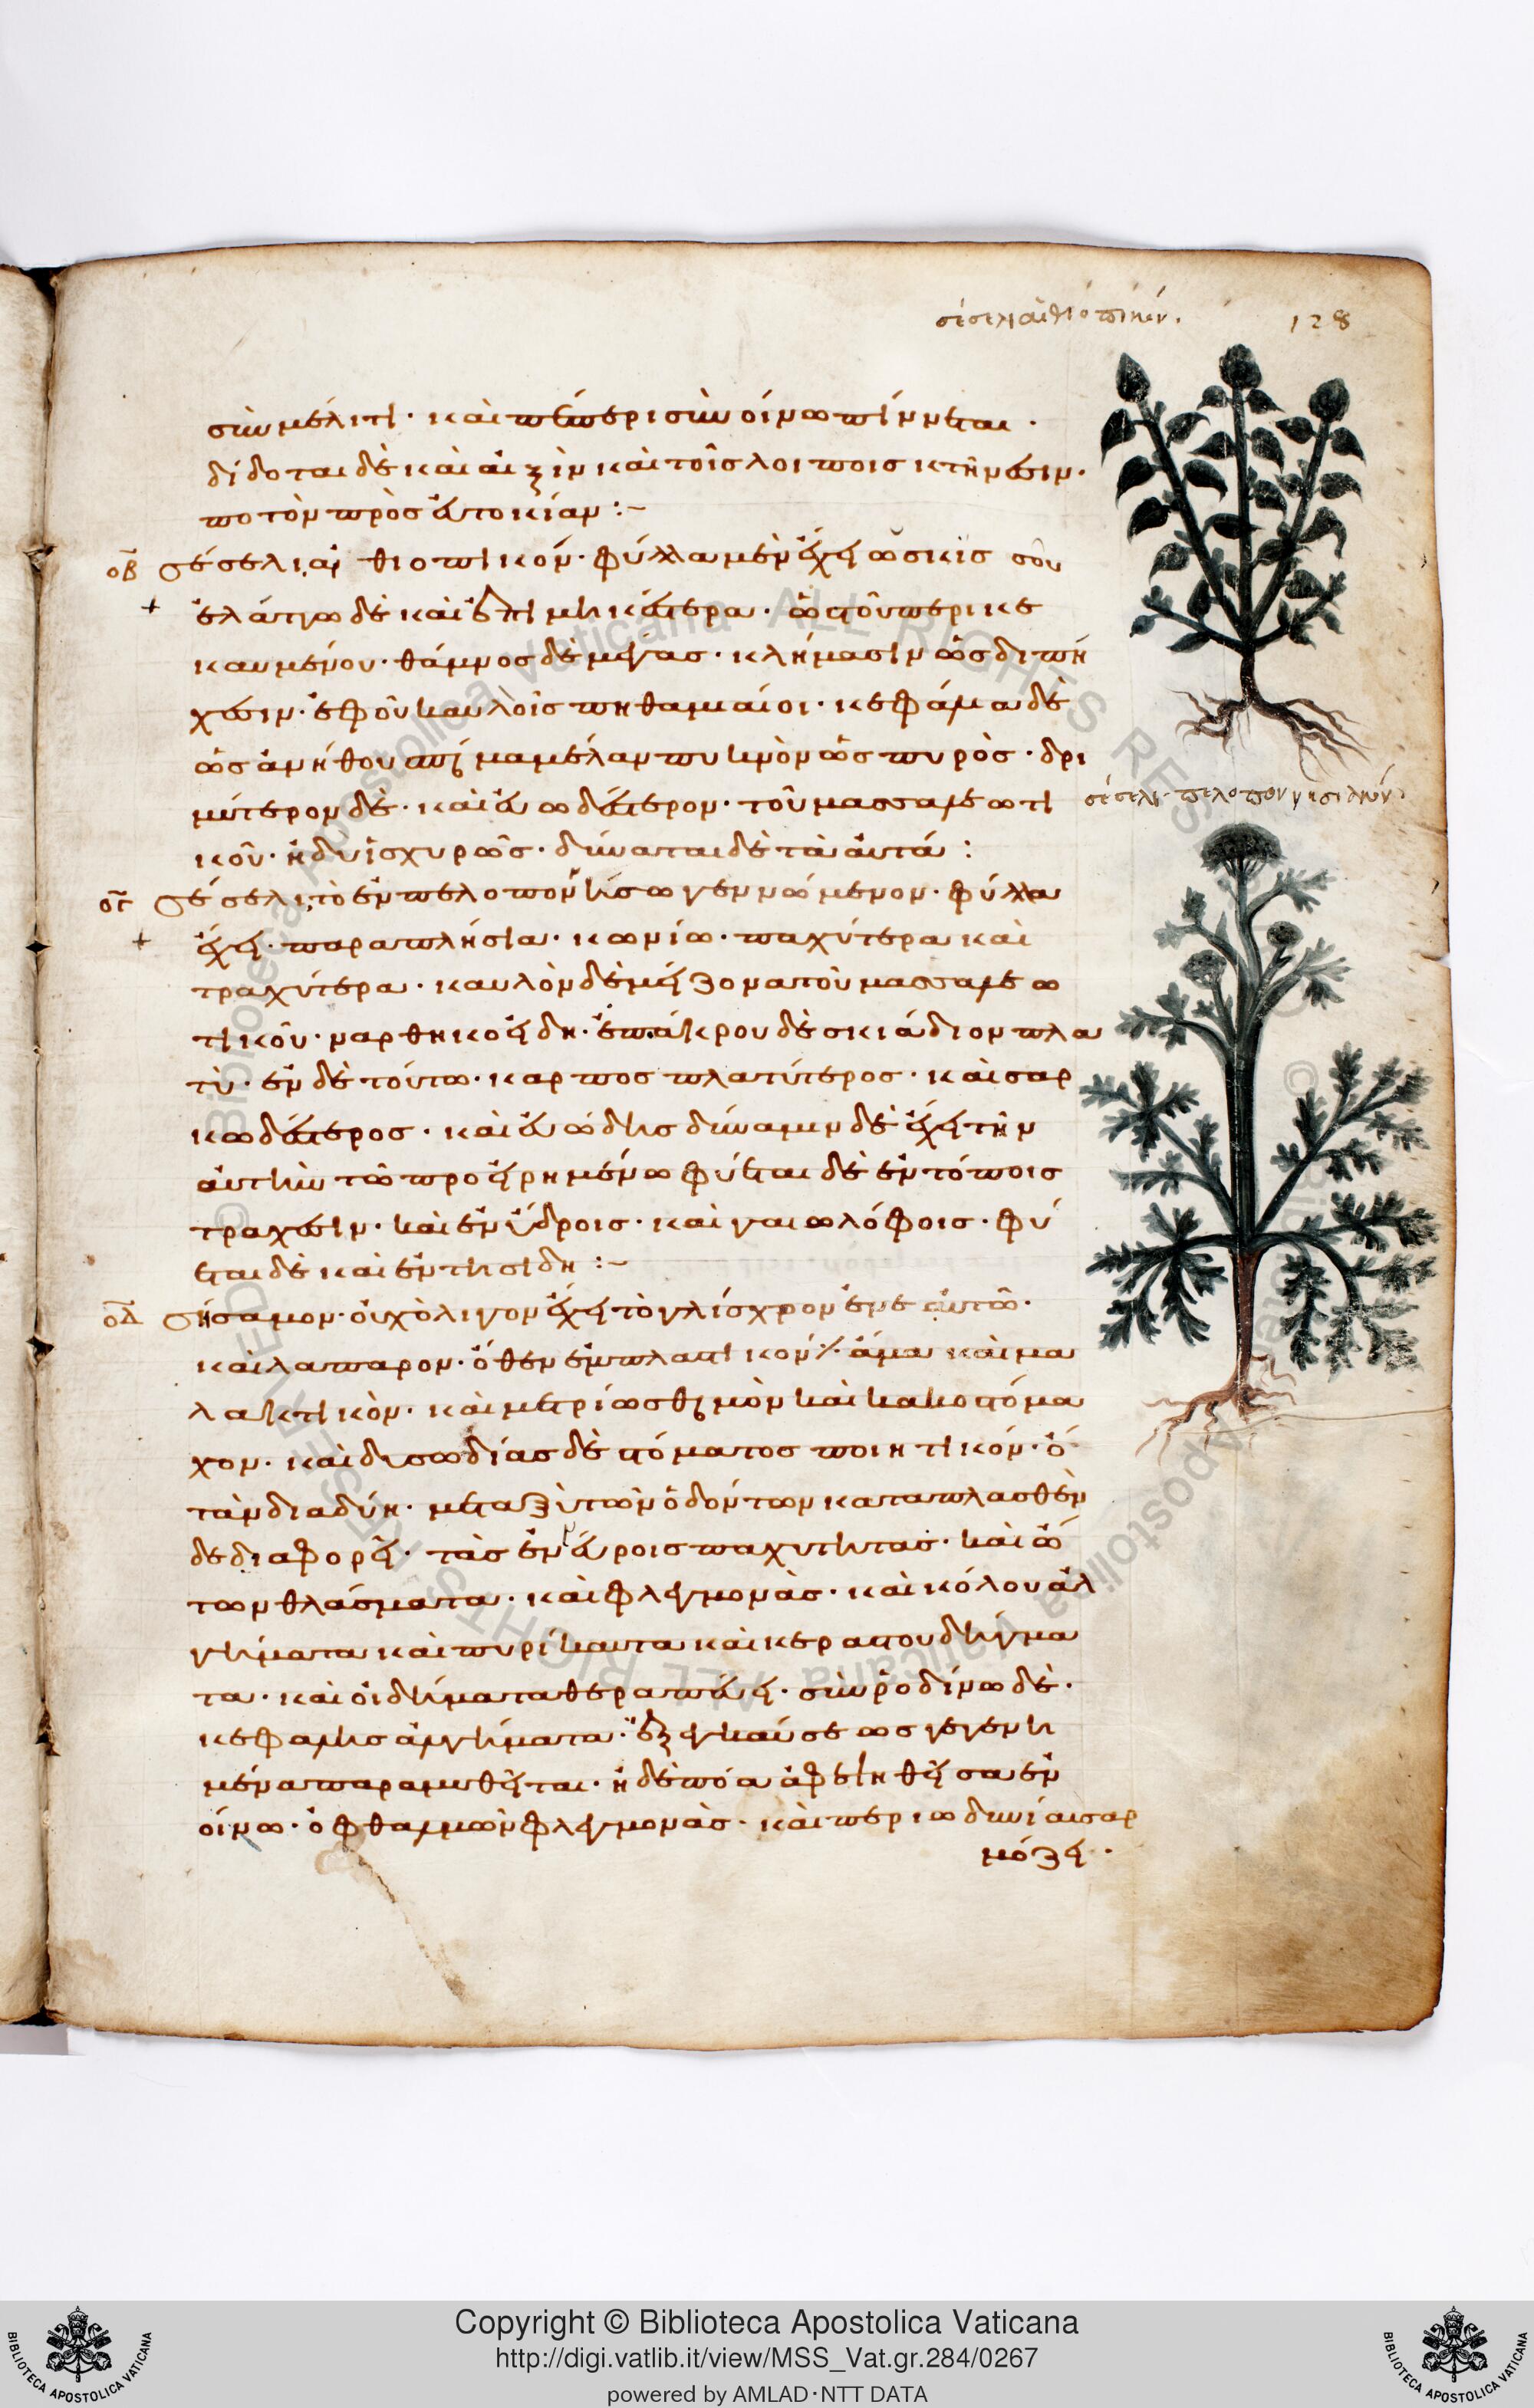 σέσελι αἰθιοπικόν.
128
σὺν μέλιτι · καὶ πεπέρι σὺν οἴνω πίννεται ·
δίδοται δὲ καὶ αἰξὶν καὶ τοῖς λοιποις κτήνεσιν ·
ποτὸν πρὸς εὐτοκίαν :~
οβ σέσελι αἰθιοπικόν · φύλλα μὲν ἔχει ὡς κισσοῦ
ἐλάττω δὲ καὶ ἐπιμηκέστερα · ὡς τοῦ περικε
καυμένου · θάμνος δὲ μέγας · κλήμασιν ὡς διπή
χεσιν · ἐφ οὗ καυλοὶς πηθαμαίοι · κεφάλια δὲ
ὡς ἀνήθου σπέρμα μέλαν πυκνὸν ὡς πυρὸς · δρι
μύτερον δὲ · καὶ εὐωδέστερον · τοῦ μασσαλεωτι
κοῦ · ἡδυ ἰσχυρῶς · δύναται δὲ τὰ ἀυτά :
ογ σέσελι τὸ ἐν πελοπονήσω γεννώμενον · φύλλα
ἔχει · παραπλήσια · κωνίω · παχύτερα καὶ
τραχύτερα · καυλὸν δὲ μείζονα τοῦ μασσαλεω
τικοῦ · ναρθηκοείδη · ἐπ ἄκρου δὲ σκιάδιον πλα
τὺ · ἐν δὲ τούτω · καρπος πλατύτερος · καὶ σαρ
κωδέστερος · καὶ εὐώδης δύναμιν δὲ ἔχει τὴν
ἀυτὴν τῶ προειρημένω φύεται δὲ ἐν τόποις
τραχέσιν · καὶ ἐν ὕδροις · καὶ γαιωλόφοις · φύ
εται δὲ καὶ ἐν τη σιδη :~
οδ σήσαμον · ὀυχ ὀλιγον ἔχει τὸ γλίσχρον ἐν ἑαυτῶ ·
καὶ λαπαρον · ὅθεν ἐμπλαστικόν ἐστιν ἅμα καὶ μα
λακτικὸν · καὶ μετρίως θερμὸν καὶ κακοστόμα
χον · καὶ δυσωδίας δὲ στόματος ποιητικόν · ὅ
τὰν διαδύη · μεταξὺ τῶν ὀδόντων καταπλασθὲν
δε διαφορεῖ · τὰς ἐν νεύροις παχυτητας · καὶ ὤ
των θλάσματα · καὶ φλεγμονὰς · καὶ κόλου ἀλ
γήματα καὶ πυρίκαυτα καὶ κεραστου δήγμα
τα · καὶ οἰδήματα θεραπεύει · σὺν ῥοδίνω δὲ ·
κεφαλης ἀλγήματα · ἐξ ἐγκαύσεως γεγενη
μένα παραμυθεῖται · ἡ δὲ πόα ἀφεψηθεῖσα ἐν
οίνω · ὀφθαλμῶν φλεγμονὰς · καὶ περιωδυνίαις αρ
μόζει ·
σέσελι πελοποννησιακόν.
Copyright © Biblioteca Apostolica Vaticana
http://digi.vatlib.it/view/MSS_Vat.gr.284/0267
powered by AMLAD·NTT DATA
BIBLIOTECA APOSTOLICA VATICANA
BIBLIOTECA APOSTOLICA VATICANA